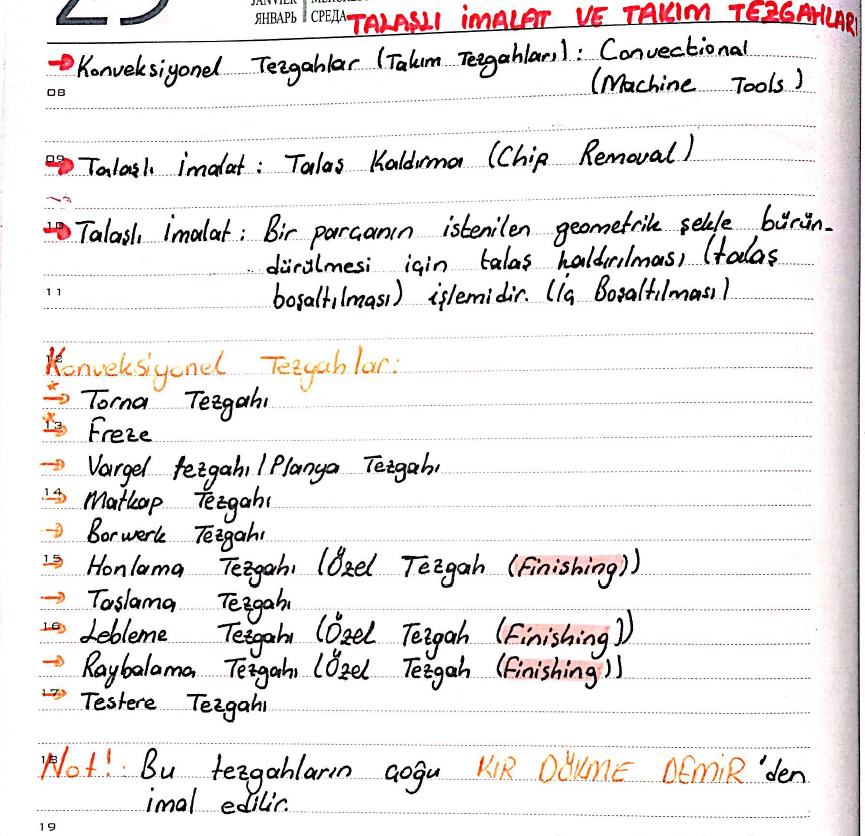 25
ЯНВАРЬ СРЕДА
TALAŞLI İMALAT VE TAKIM TEZGAHLARI
Konveksiyonel Tezgahlar (Takım Tezgahları) : Convectional
(Machine Tools)
08
09 Talaşlı imalat : Talaş Kaldırma (Chip Removal)
10 Talaşlı imalat : Bir parçanın istenilen geometrik şekle bürün-
dürülmesi için talaş kaldırılması (talaş
11 boşaltılması) işlemidir. (İç Boşaltılması)
12
Konveksiyonel Tezgahlar:
Torna Tezgahı
13 Freze
Vargel tezgahı / Planya Tezgahı
14 Matkap Tezgahı
Borwerk Tezgahı
15 Honlama Tezgahı (Özel Tezgah (Finishing))
Taşlama Tezgahı
16 Lebleme Tezgahı (Özel Tezgah (Finishing))
Raybalama Tezgahı (Özel Tezgah (Finishing))
17 Testere Tezgahı
18 Not!: Bu tezgahların çoğu KIR DÖKME DEMİR'den
imal edilir.
19